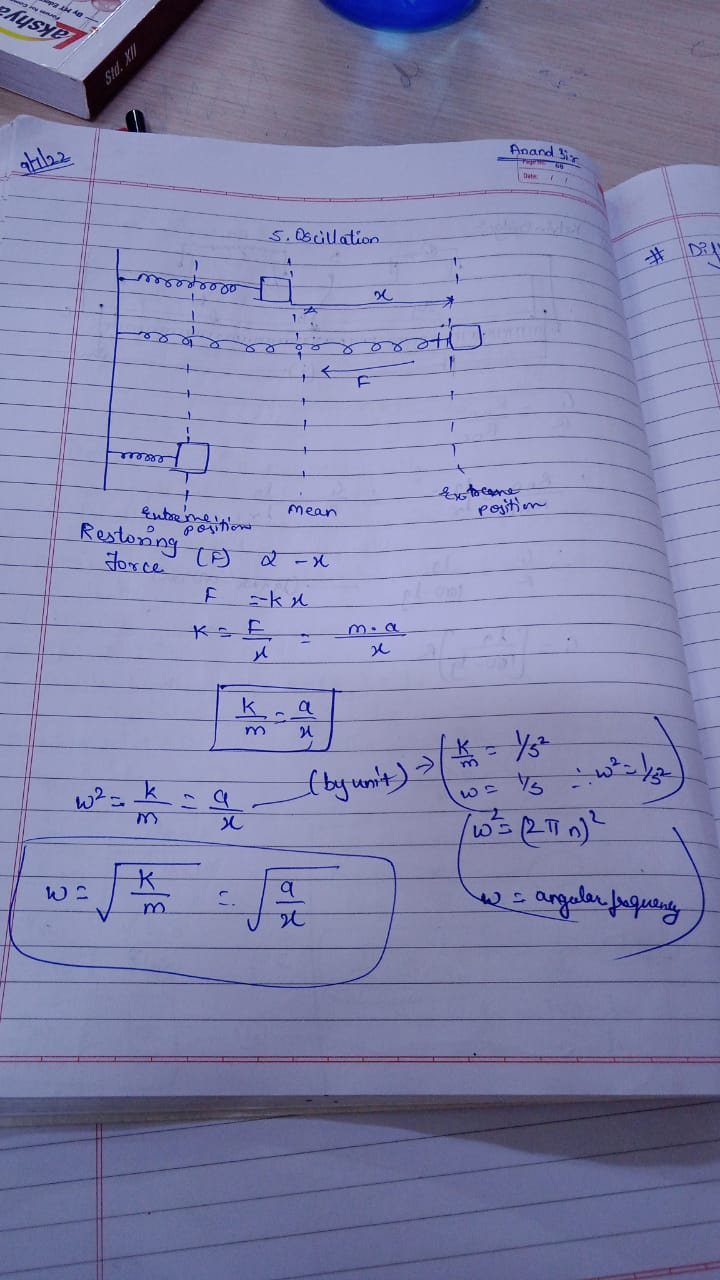 Lakshya
Std. XII
9/1/22
Anand Sir
Page No. 66
Date: / /
5. Oscillation
x
F
Extreme position
Mean
Extreme position
Restoring force (F) α -x
F = -kx
K = F/x = m.a/x
k/m = a/x
w² = k/m = a/x (by unit) → (K/m = 1/s²
w = 1/s ∴ w² = 1/s²)
(w² = (2πn)²
w = angular frequency)
w = √(K/m) = √(a/x)
# Dif